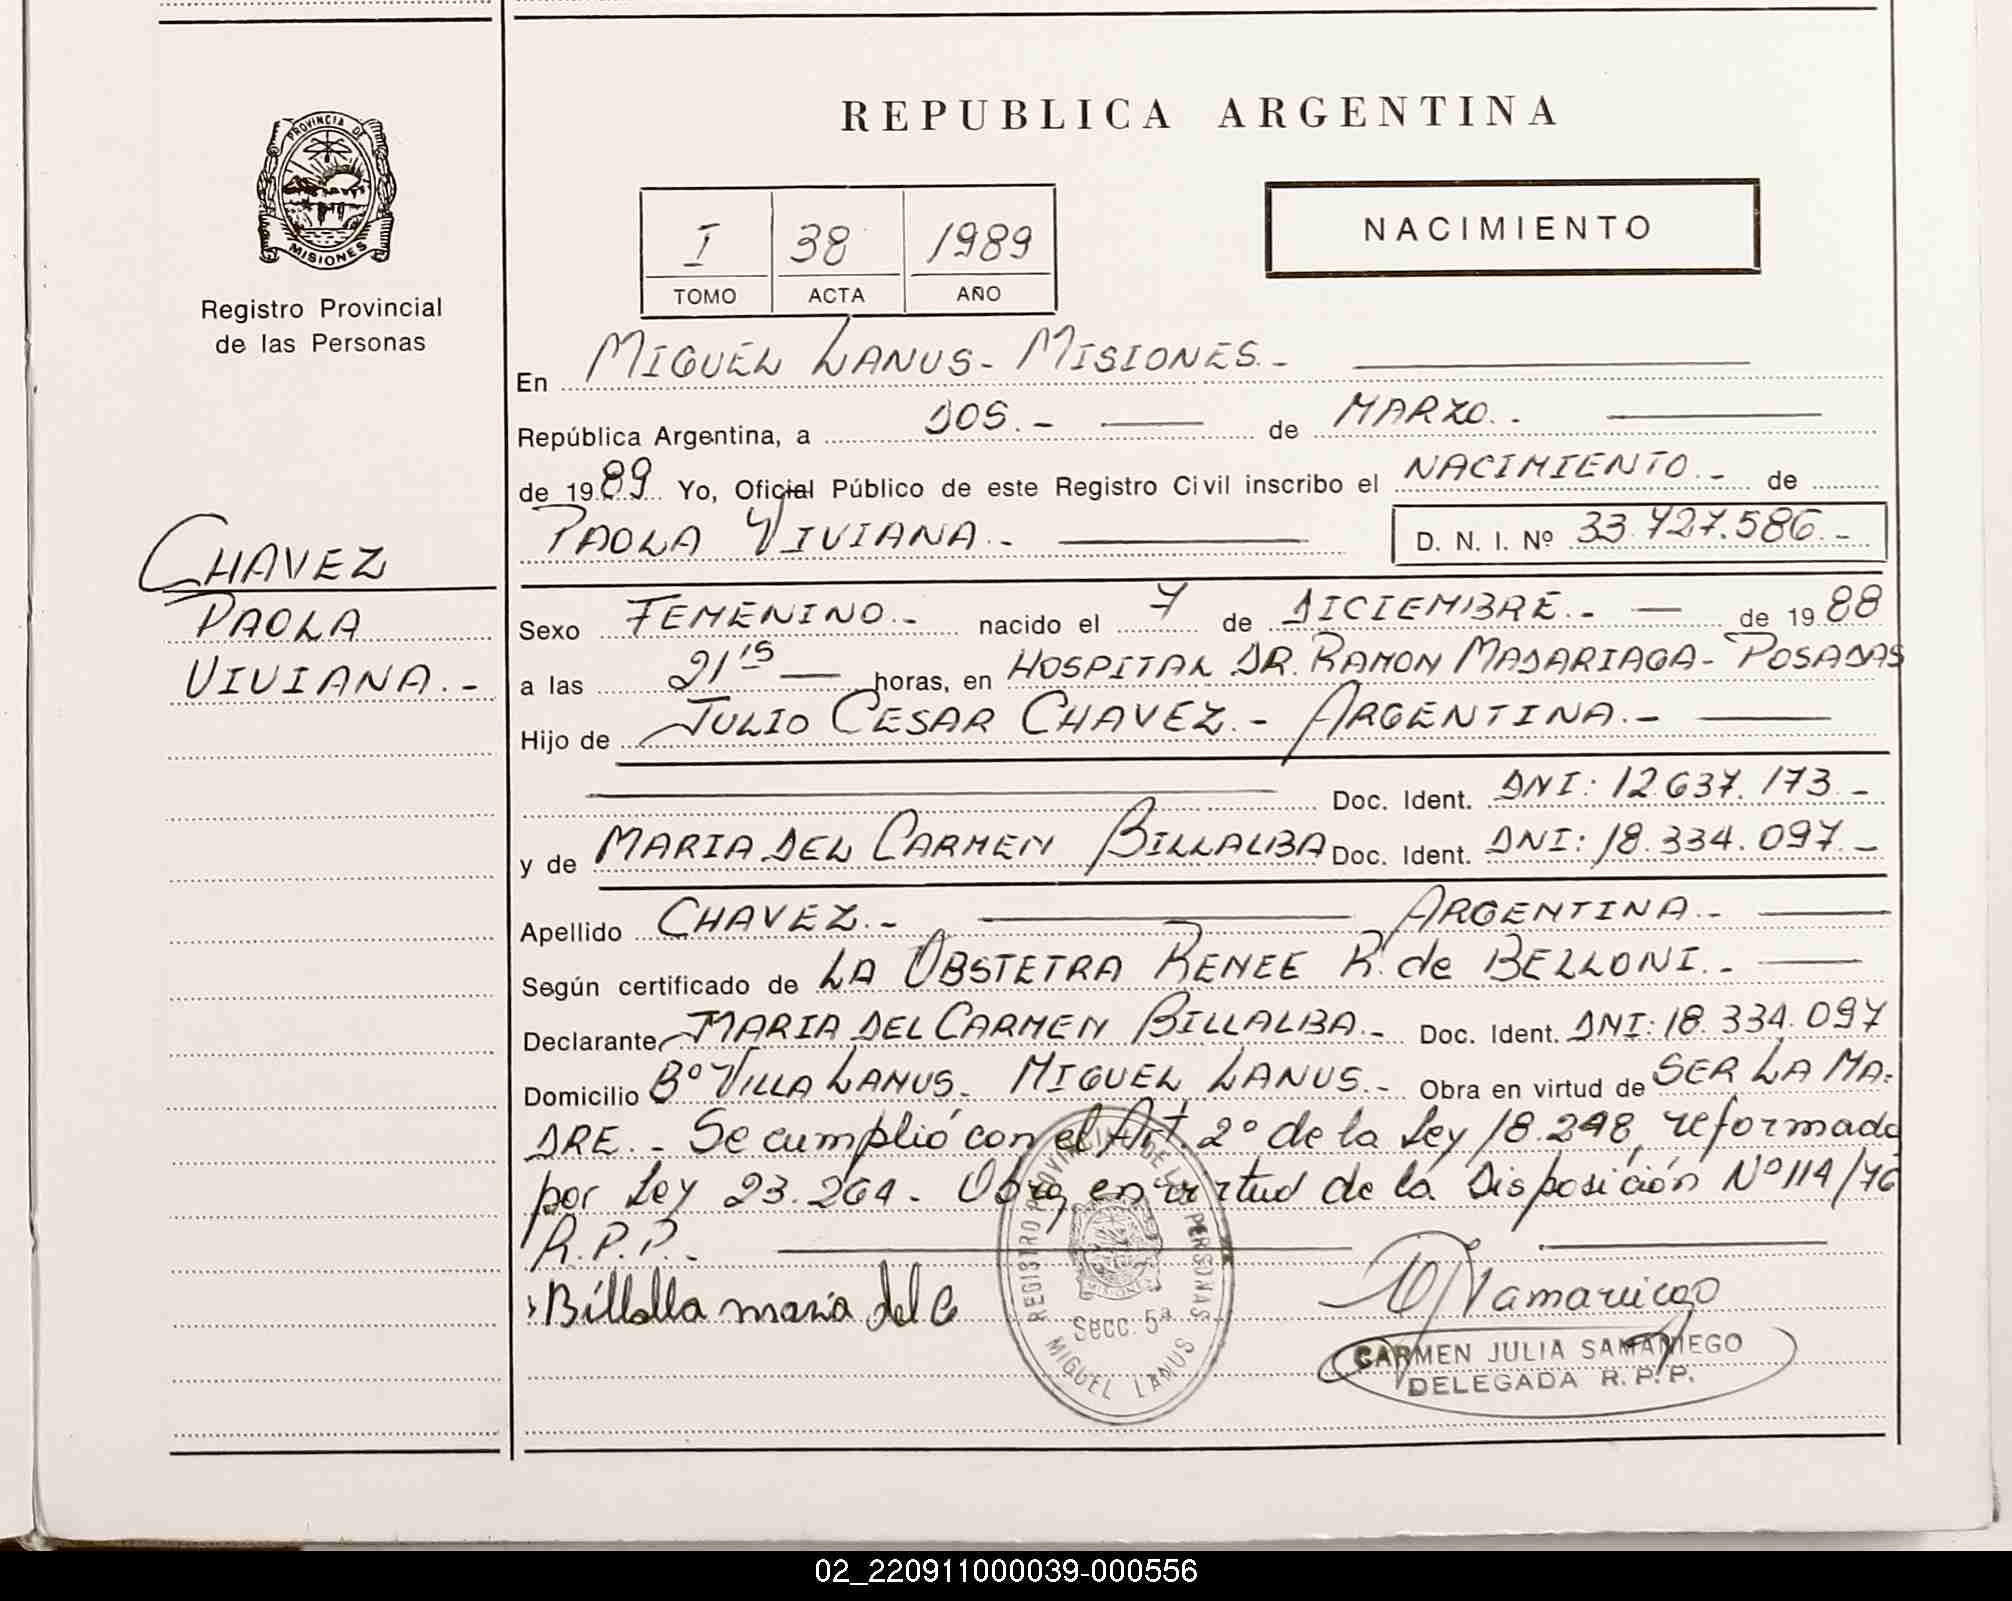 REPUBLICA ARGENTINA
PROVINCIA DE
MISIONES
Registro Provincial
de las Personas
I 38 1989
TOMO ACTA AÑO
NACIMIENTO
En MIGUEL LANUS - MISIONES.-
República Argentina, a DOS.- de MARZO.-
de 1989 Yo, Oficial Público de este Registro Civil inscribo el NACIMIENTO.- de
PAOLA VIVIANA.- D. N. I. Nº 33.727.586.-
CHAVEZ
PAOLA
VIVIANA.-
Sexo FEMENINO.- nacido el 7 de DICIEMBRE.- de 1988
a las 21 15 horas, en HOSPITAL DR. RAMON MADARIAGA - POSADAS
Hijo de JULIO CESAR CHAVEZ.- ARGENTINA.-
Doc. Ident. DNI: 12.637.173.-
y de MARIA DEL CARMEN BILLALBA Doc. Ident. DNI: 18.334.097.-
Apellido CHAVEZ.- ARGENTINA.-
Según certificado de LA OBSTETRA RENEE R. de BELLONI.-
Declarante MARIA DEL CARMEN BILLALBA.- Doc. Ident. DNI: 18.334.097
Domicilio Bº VILLA LANUS. MIGUEL LANUS.- Obra en virtud de SER LA MA-
DRE.- Se cumplió con el Art. 2º de la Ley 18.248, reformada
por Ley 23.264. Obra en virtud de la Disposición Nº 114/76
R.P.P.-
Billalla maria del C
REGISTRO PROVINCIAL DE LAS PERSONAS
MISIONES
Secc. 5ª
MIGUEL LANUS
CARMEN JULIA SAMANIEGO
DELEGADA R.P.P.
02_220911000039-000556